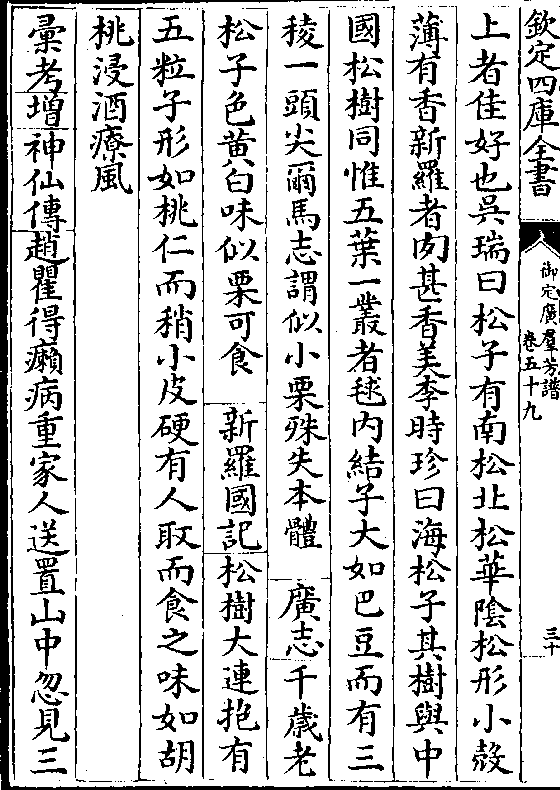 欽定四庫全書
御定廣羣芳譜
卷五十九
三十
上者佳好也吳瑞曰松子有南松北松華陰松形小殼
薄有香新羅者肉甚香美李時珍曰海松子其樹與中
國松樹同惟五葉一叢者毬內結子大如巴豆而有三
稜一頭尖爾馬志謂似小栗殊失本體 廣志千歲老
松子色黃白味似栗可食 新羅國記松樹大連抱有
五粒子形如桃仁而稍小皮硬有人取而食之味如胡
桃浸酒療風
彙考增神仙傳趙瞿得癩病重家人送置山中忽見三